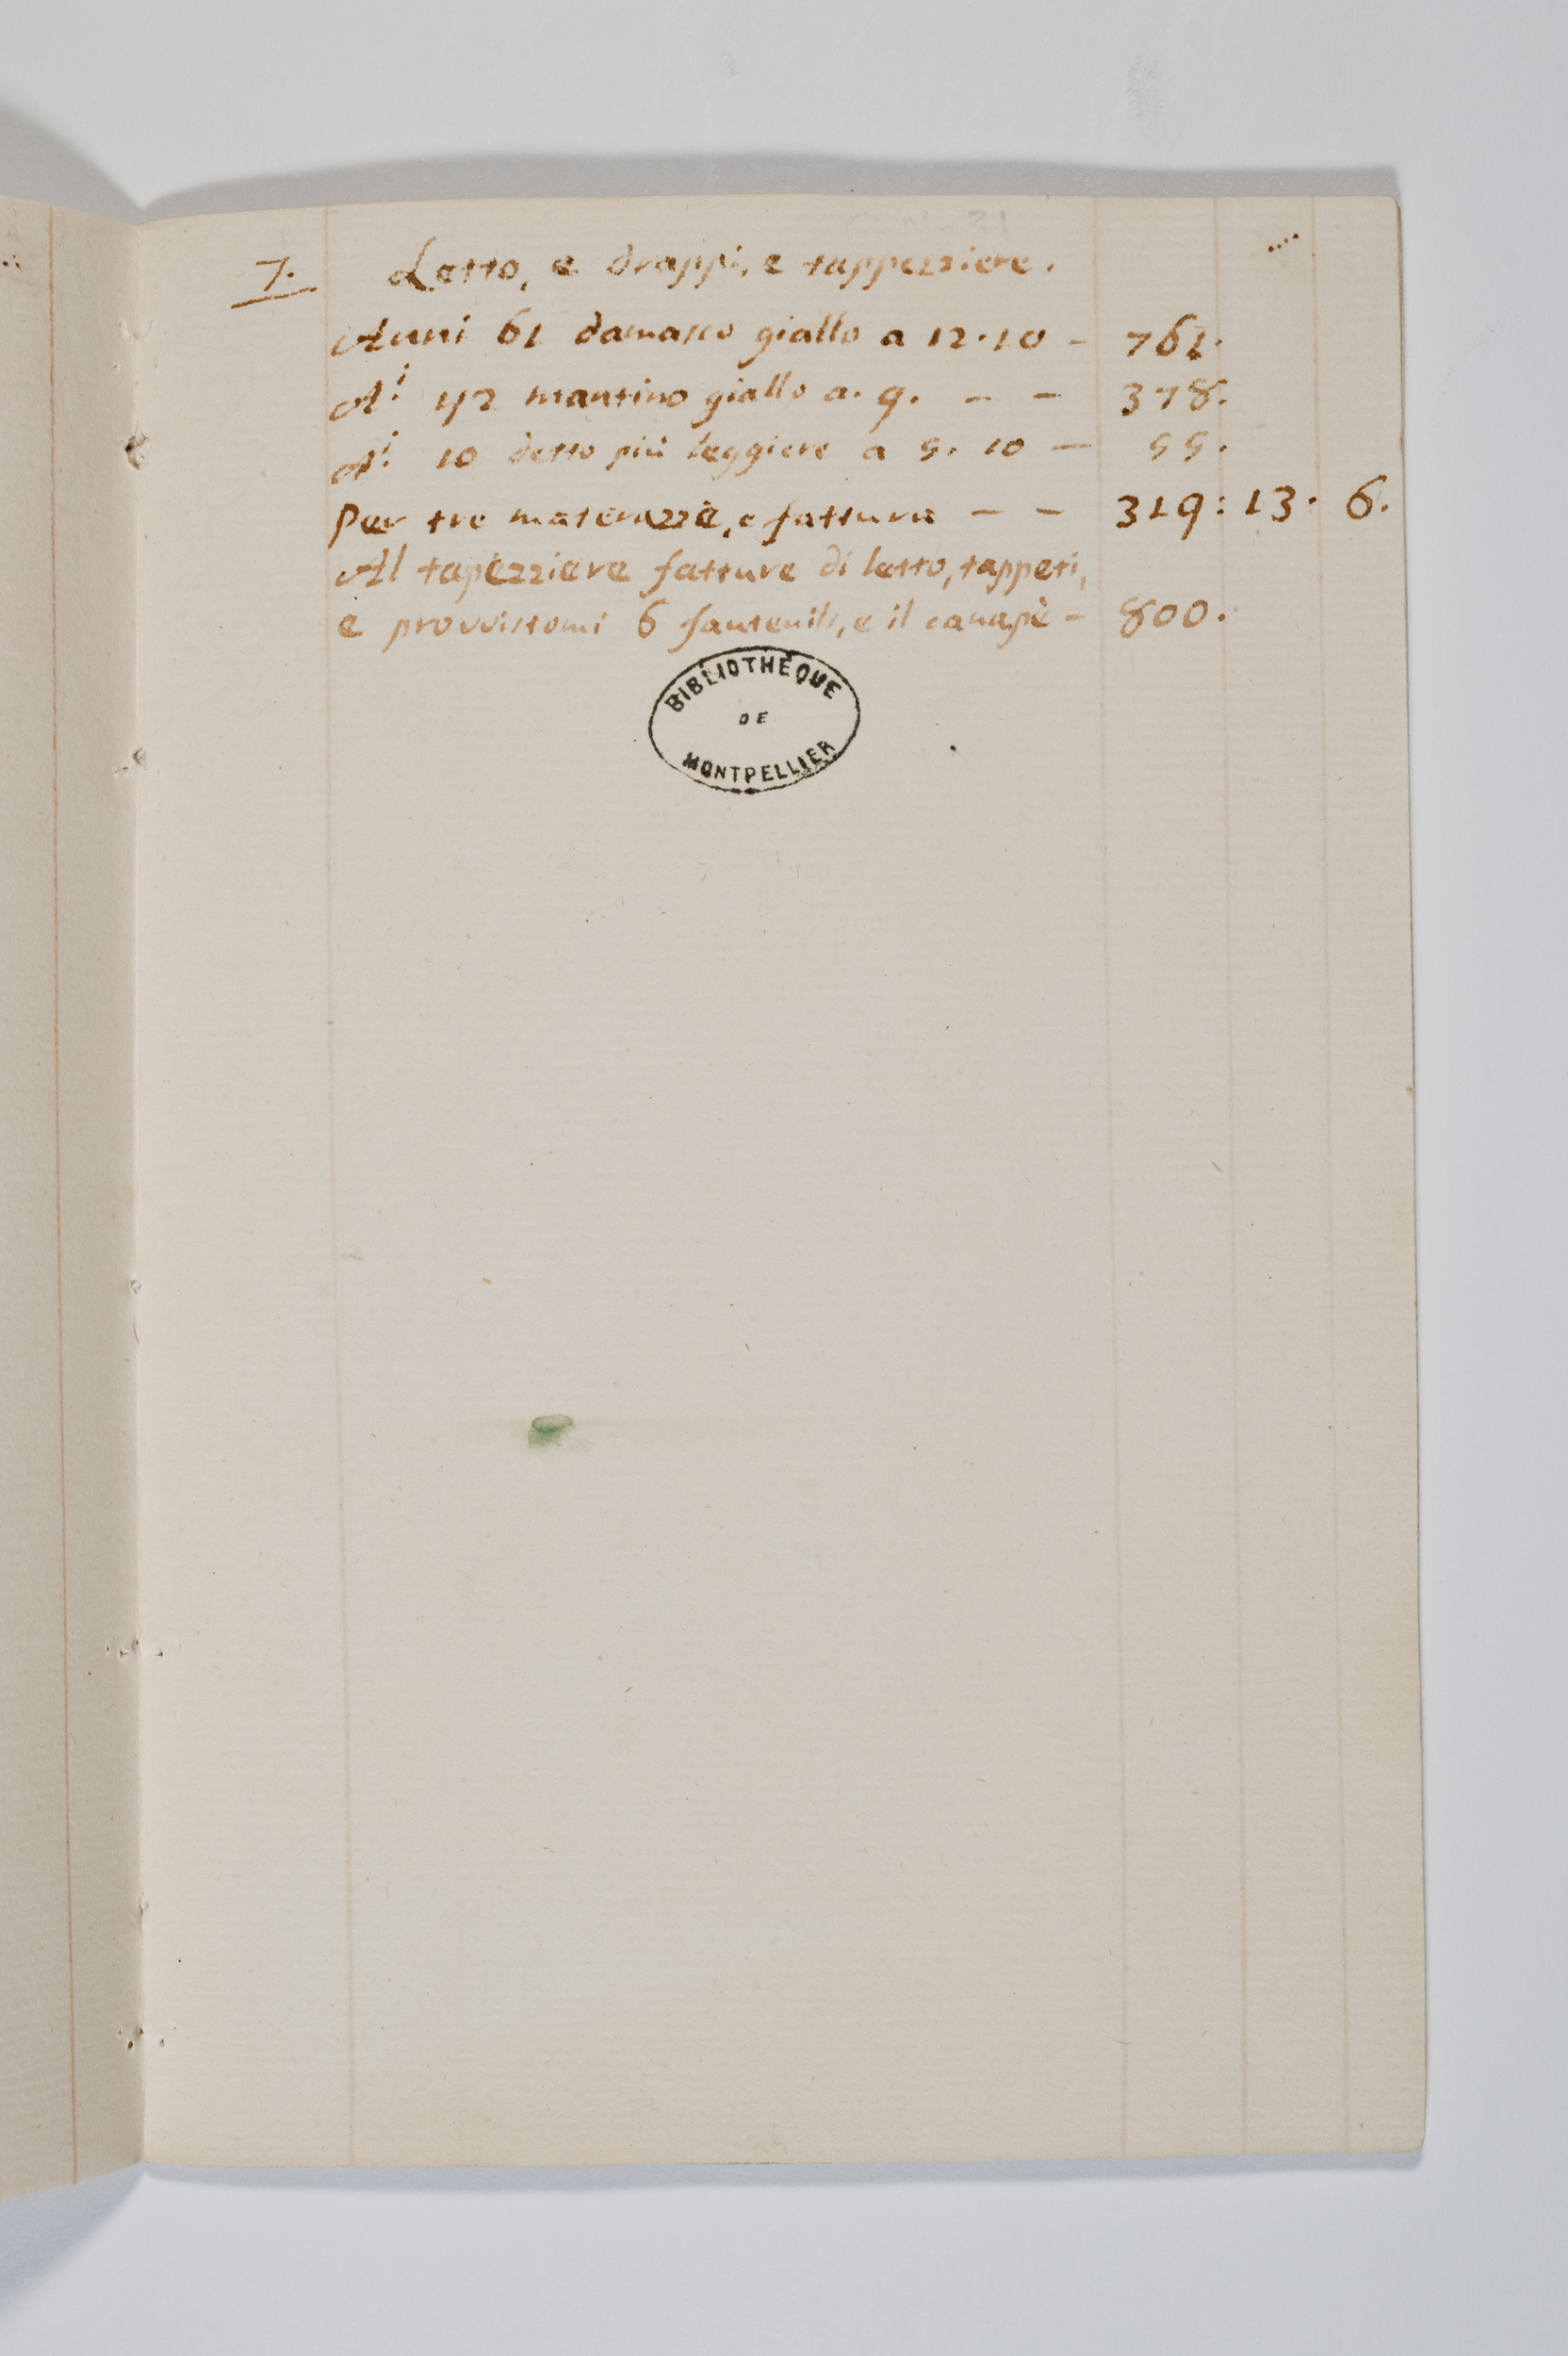 7. Letto, e drappi, e tappezziere.
Auni 61 damasco giallo a 12.10 - 762.
A.i 42 mantino giallo a. 9. - - 378.
A.i 10 detto più leggiere a 5. 10 - 55.
Per tre materazze, e fattura - - 319: 13. 6.
Al tapezziere fatture di letto, tappeti,
e provvistomi 6 fauteuils, e il canapè - 800.
BIBLIOTHÉQUE
DE
MONTPELLIER